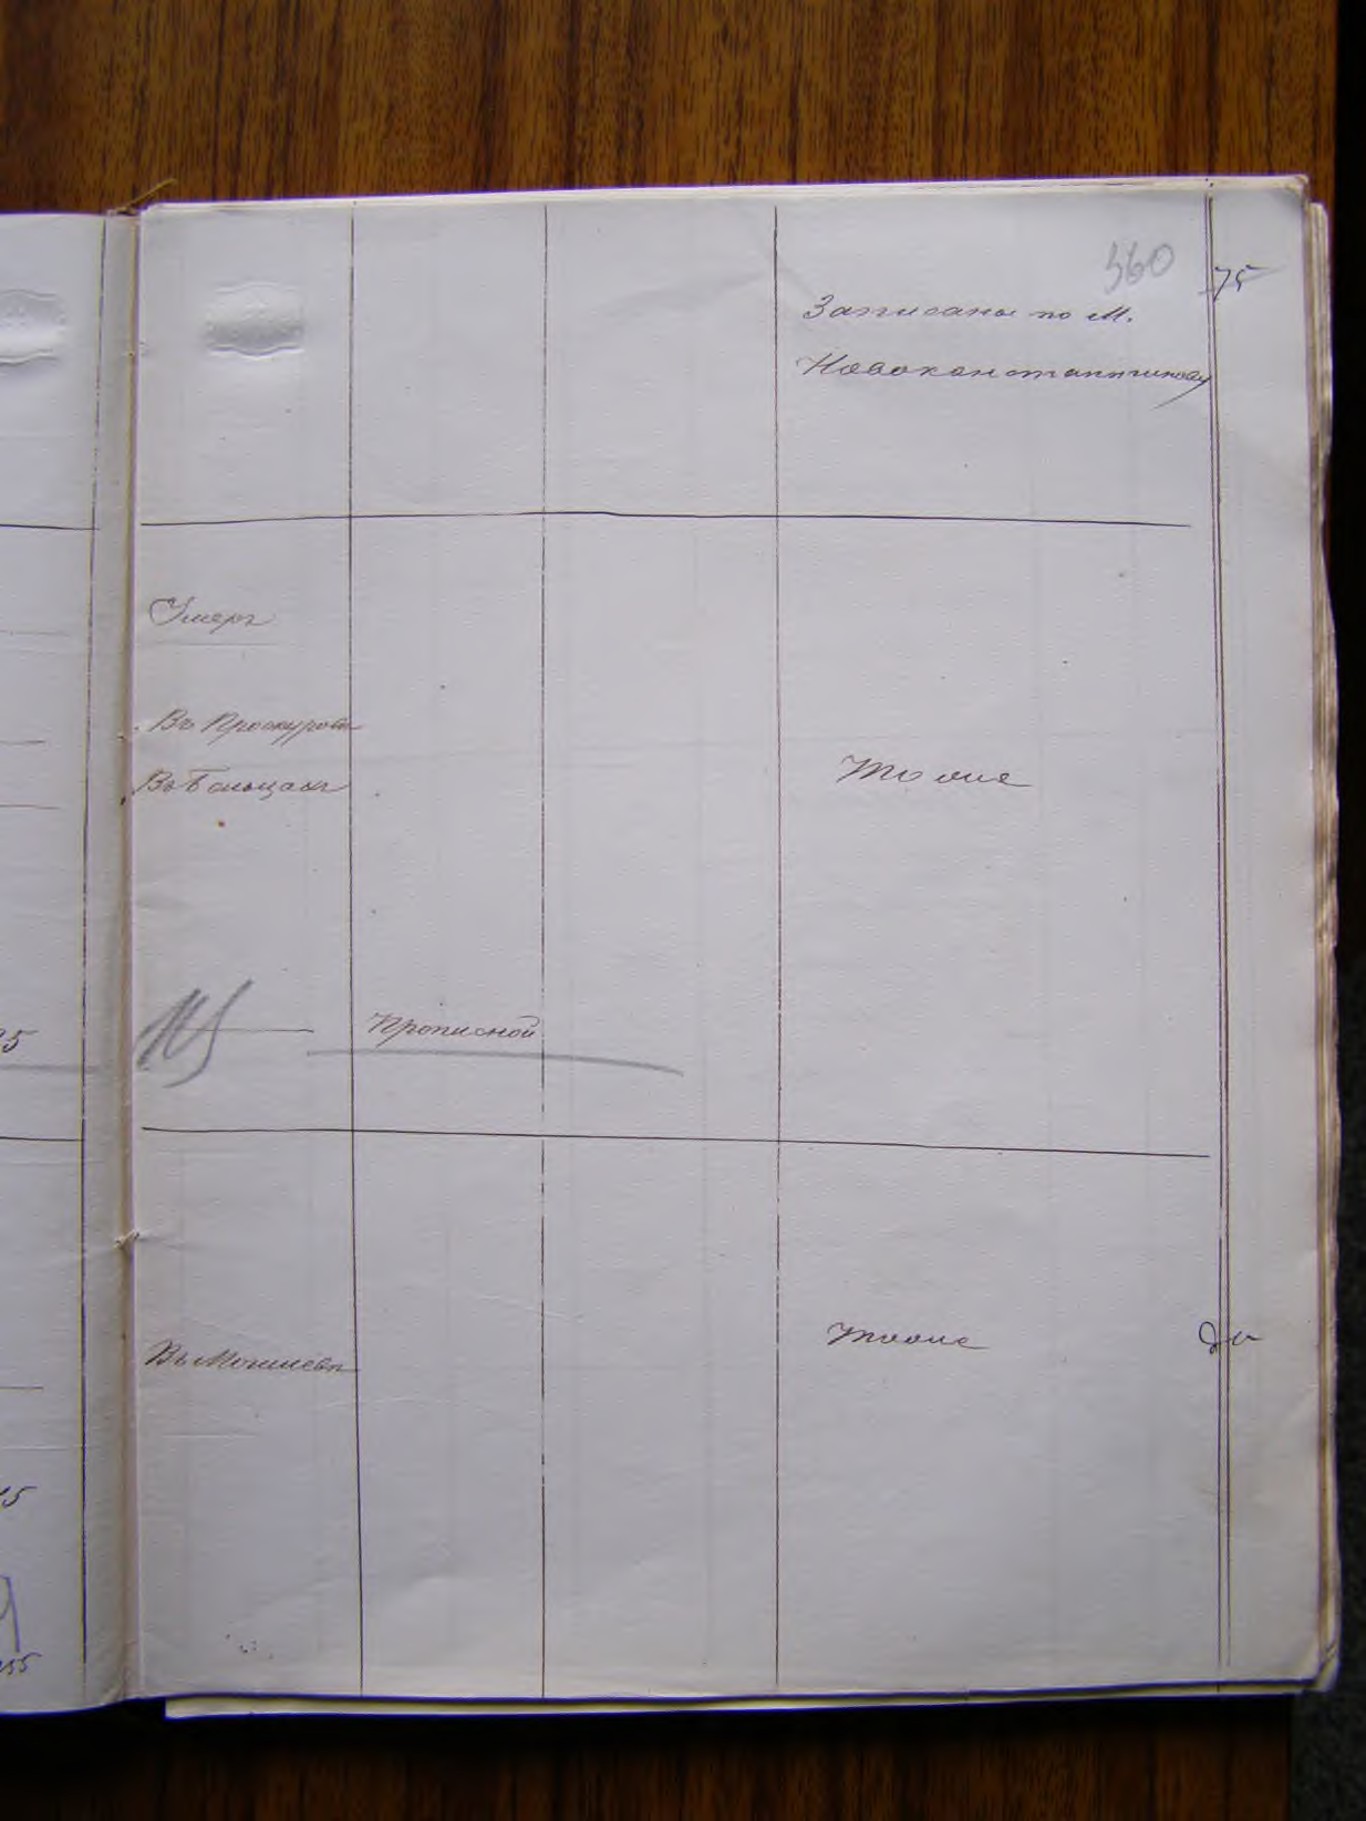 360
75
Записаны по М.
Новоконстантинову
Умеръ
Въ Проскуровѣ
Въ Бельцахъ
Тоже
25
Прописной
Въ Могилевѣ
Тоже
да